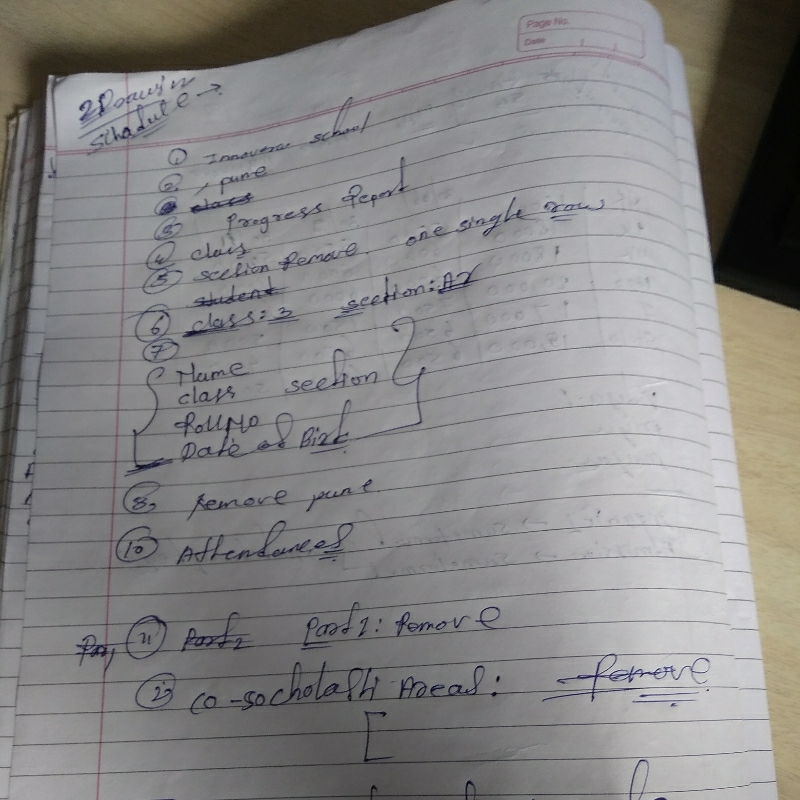 Page No.
Date
Schadule →
① Innovera school
②, pune
class
③ Progress Report
④ class
⑤ section Remove one single row
student
⑥ class: 3 section: A
⑦
Name
class section
Roll No
Date of Birt
⑧, Remove pune
⑩ Attendance
⑪ Part2 Part 1: Remove
⑫ co-socholasti Areas: Remove
[